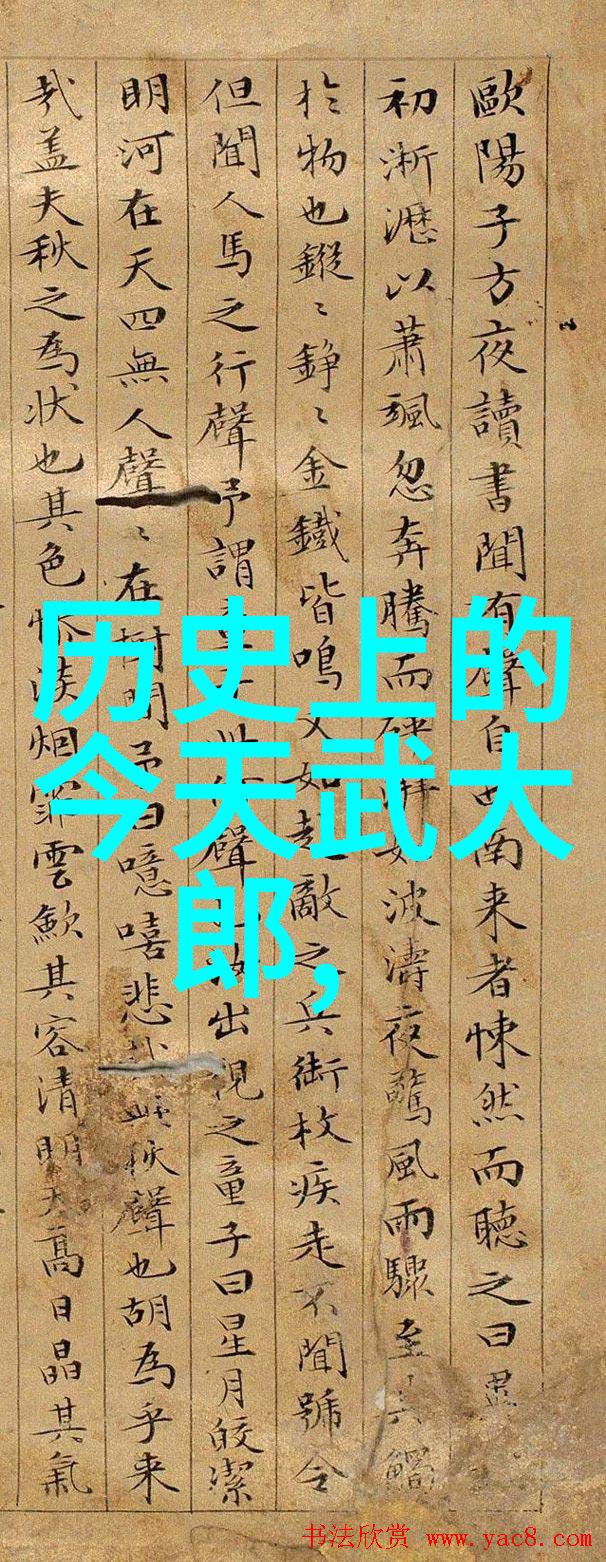 歐陽子方夜讀書聞有聲自西南来者悚然而聽之曰異
初淅瀝以蕭颯忽奔騰而砰湃如波濤夜驚風雨驟至其觸
於物也鏦〻錚〻金鐵皆鳴又如赴敵之兵銜枚疾走不聞號令
但聞人馬之行聲予謂童子此何聲也汝出視之童子曰星月皎潔
明河在天四無人聲〻在樹間予曰噫嘻悲哉此秋聲也胡為乎来
哉盖夫秋之為状也其色惨淡烟霏雲歛其容清明天高日晶其氣
历史上的
今天武大
郎,
书法欣赏 www.yac8.com